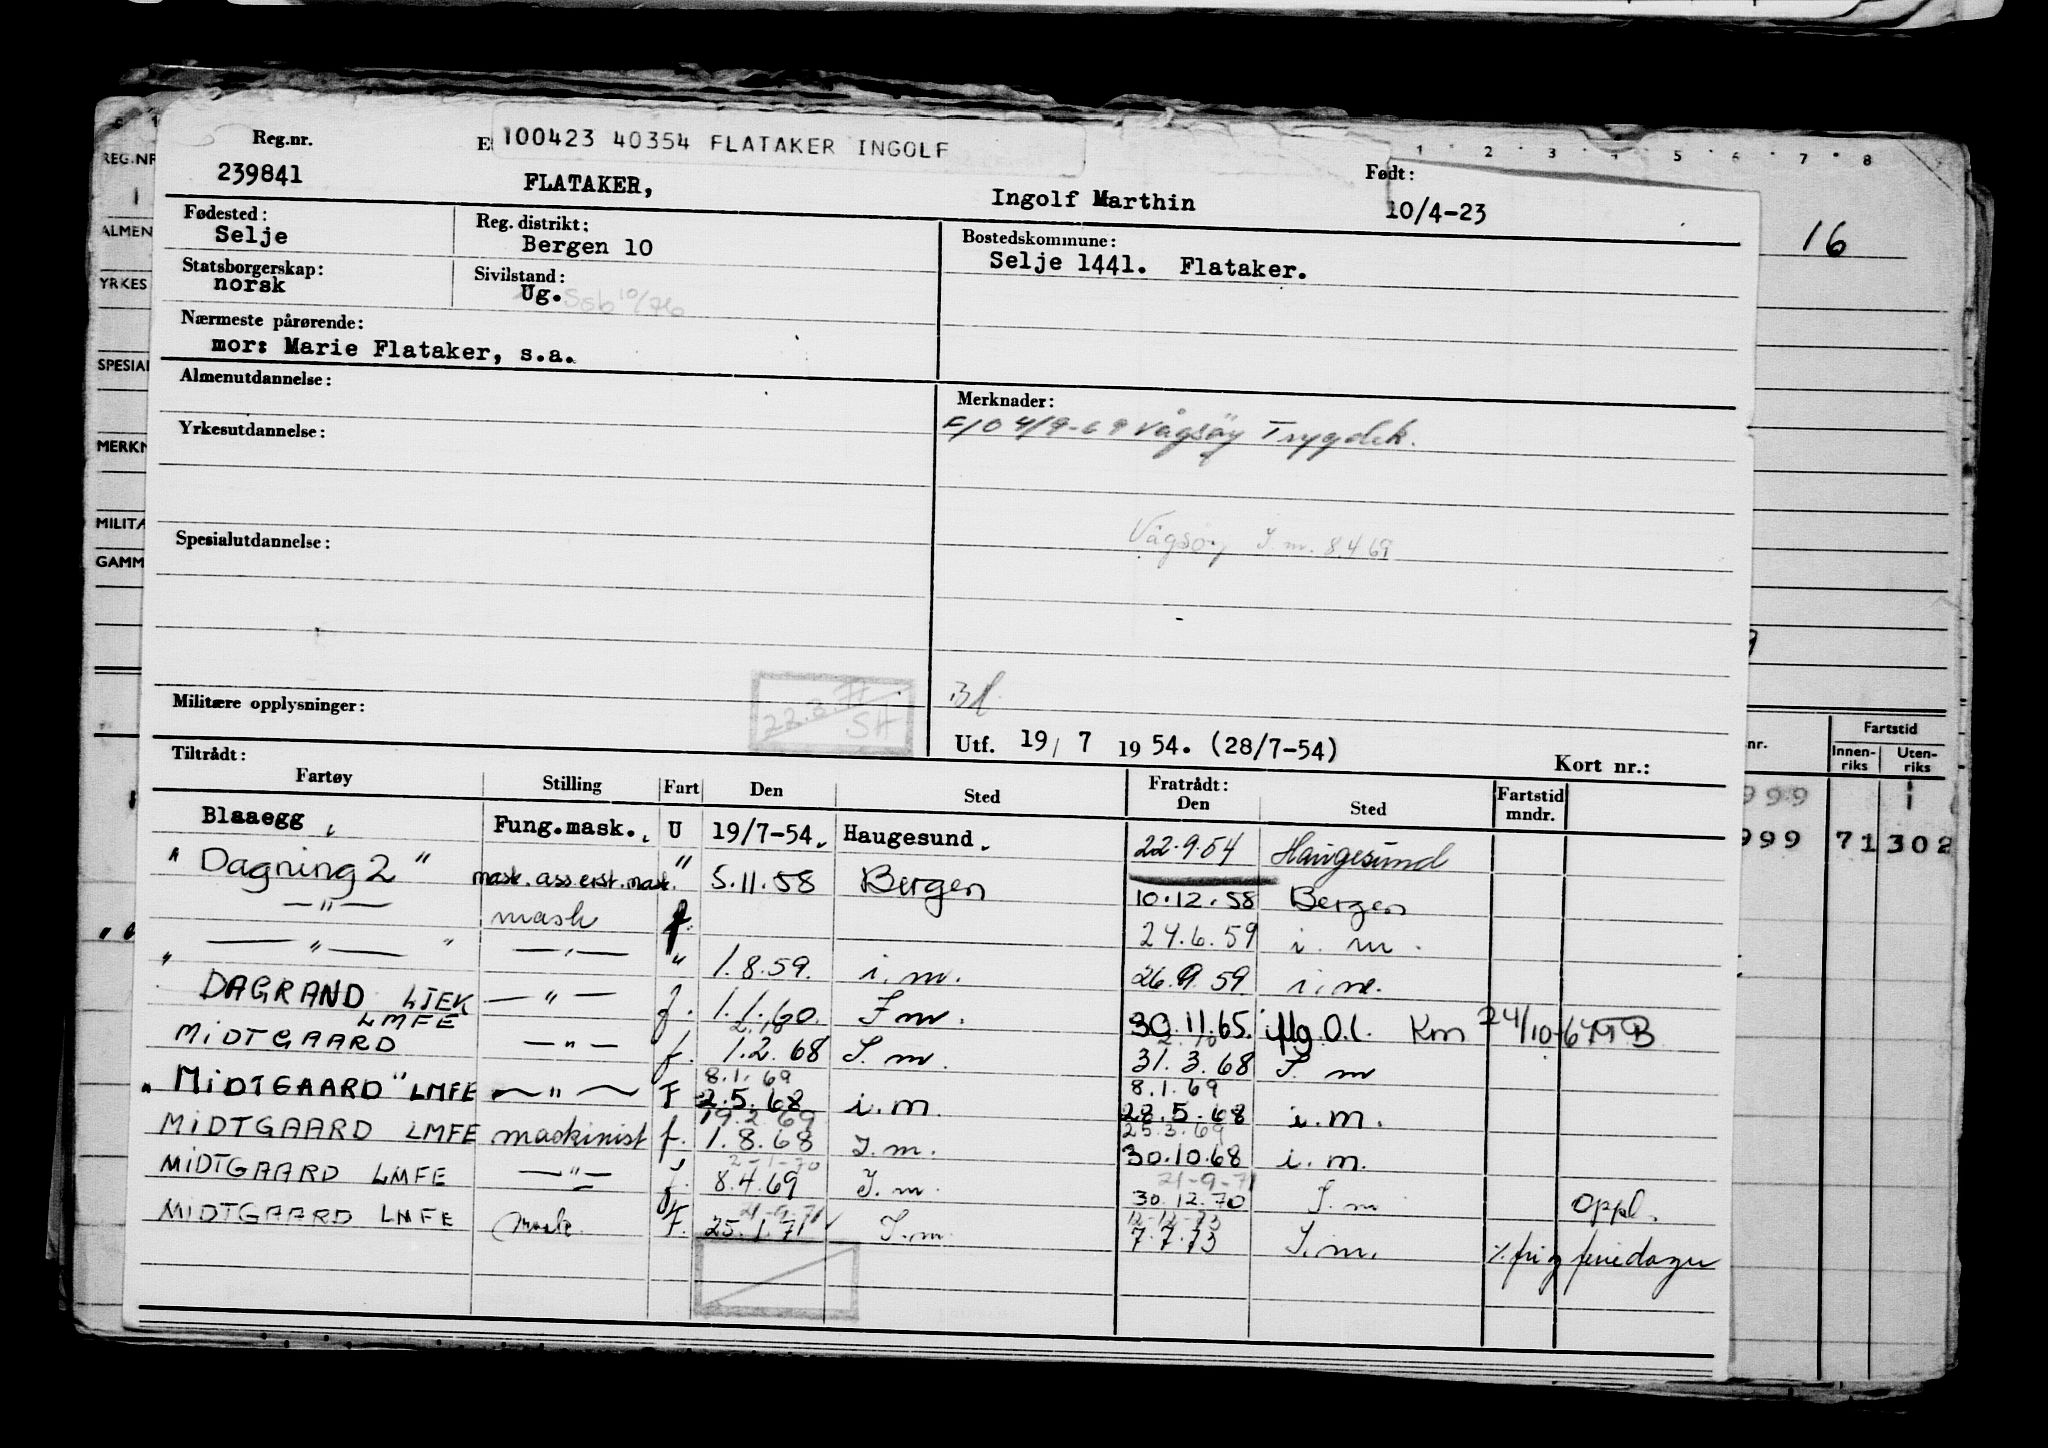 Reg.nr. E 100423 40354 FLATAKER INGOLF Født:
239841 FLATAKER, Ingolf Marthin 10/4-23
1 2 3 4 5 6 7 8
REG.NR
ALMEN
YRKES
SPESIAL
MERKN
MILITÆ
GAMM
16
Fødested: Reg. distrikt: Bostedskommune:
Selje Bergen 10 Selje 1441. Flataker.
Statsborgerskap: Sivilstand:
norsk Ug.
Nærmeste pårørende:
mor: Marie Flataker, s.a.
Almenutdannelse: Merknader:
F/O 4/9-69 Vågsöy Trygdek.
Yrkesutdannelse:
Vågsöy I.m. 8.4 69
Spesialutdannelse:
Militære opplysninger: 22.3.77 SH
Utf. 19/ 7 1954. (28/7-54) Kort nr.:
nr. Fartstid
Innen-riks Uten-riks
999 1
999 71 302
Tiltrådt: Fratrådt:
Fartøy Stilling Fart Den Sted Den Sted Fartstid mndr.
Blaaegg, Fung.mask., U 19/7-54. Haugesund. 22.9.54 Haugesund
" Dagning 2 " mask. ass erst. mask. " 5.11.58 Bergen 10.12.58 Bergen
—"— mask f. 24.6.59 i.m.
" —"— " —"— " 1.8.59. i.m. 26.9.59 i.m.
DAGRAND LIEK —"— f. 1.1.60. I m. 30.11.65. iflg. O.l. Km 24/10-67 MB
LMFE
MIDTGAARD —"— f. 1.2.68 I.m 31.3.68 I.m
8.1.69 8.1.69
" MIDTGAARD" LMFE —"— F 2.5.68 i.m. 28.5.68 i.m.
19.2.69 25.3.69
MIDTGAARD LMFE maskinist f. 1.8.68 I.m. 30.10.68 i.m.
2-1-70 21-9-71
MIDTGAARD LMFE —"— f. 8.4.69 I.m. 30.12.70 I.m Oppl.
21-9-71 12-12-73
MIDTGAARD LMFE mask F. 25.1.71 I.m. 7.7.73 I.m. % fri og feriedager